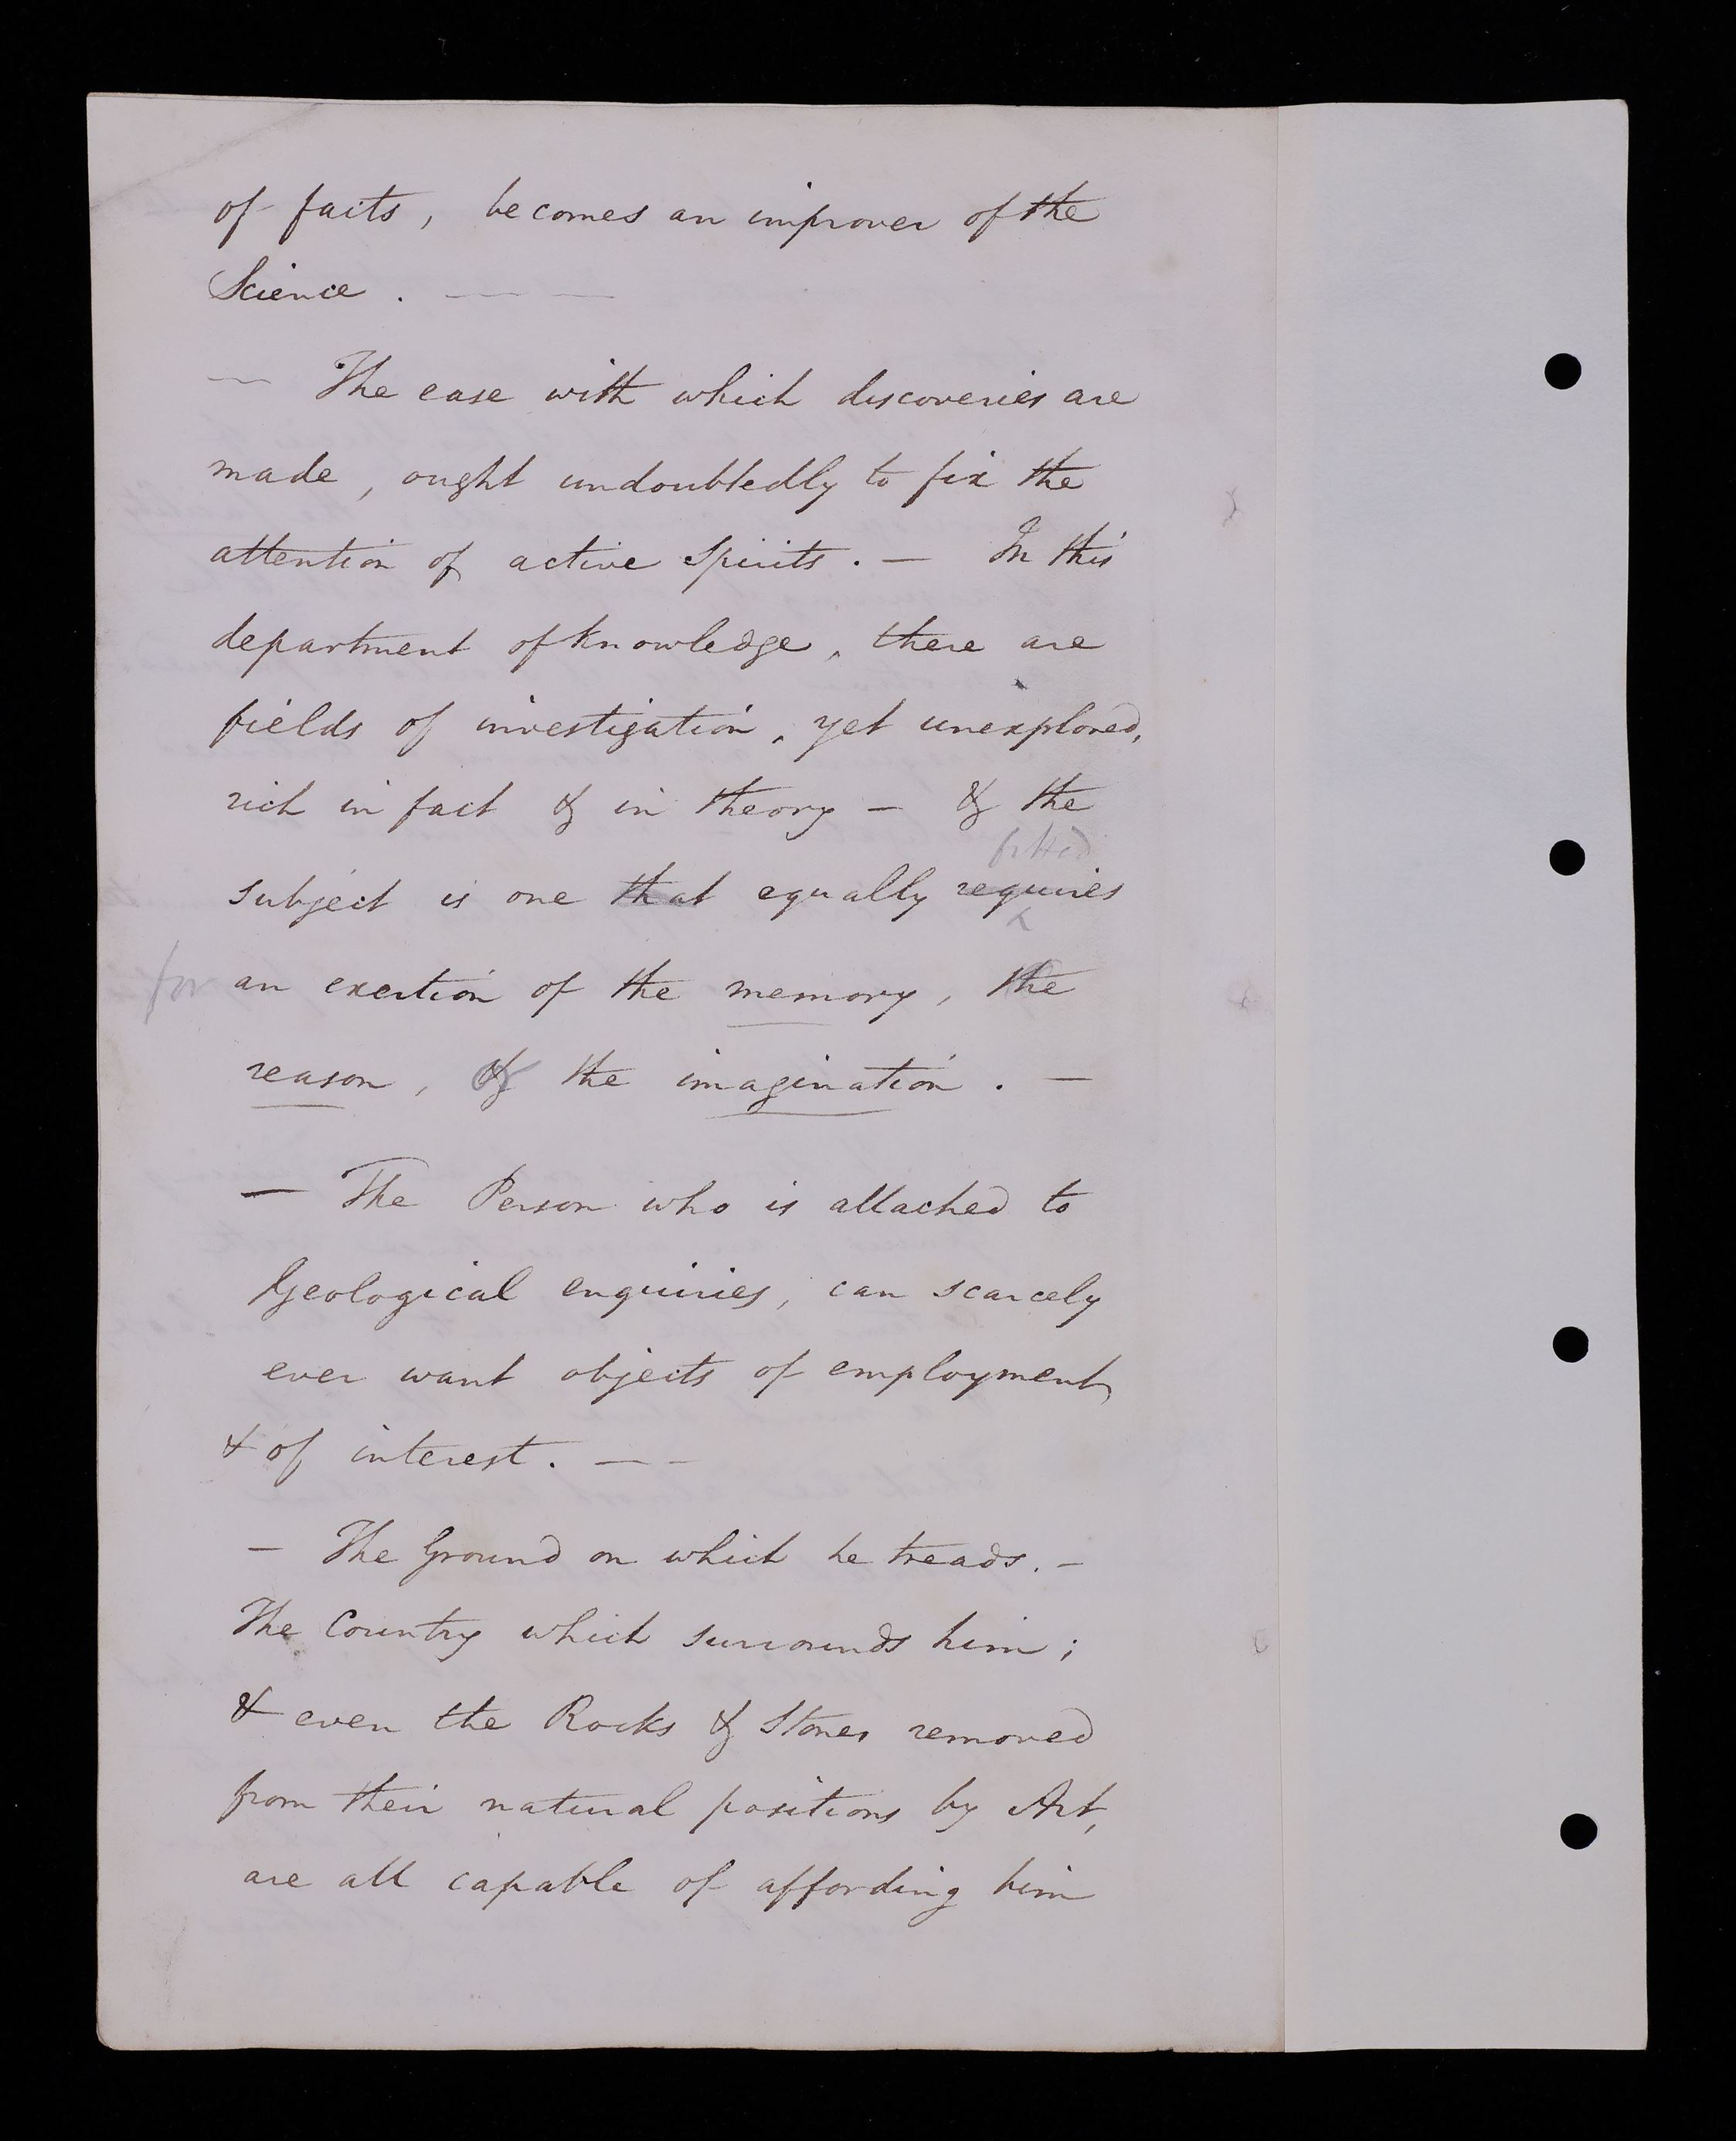 of facts, becomes an improver of the
Science. — —
— The ease with which discoveries are
made, ought undoubtedly to fix the
attention of active Spirits. — In this
department of knowledge, there are
fields of investigation, yet unexplored,
rich in fact & in theory — & the
fitted
subject is one that equally requires
for an exertion of the memory, the
reason, & the imagination. —
— The Person who is attached to
Geological enquiries, can scarcely
ever want objects of employment,
& of interest. — —
— The Ground on which he treads. —
The Country which surrounds him;
& even the Rocks & Stones removed
from their natural positions by Art,
are all capable of affording him